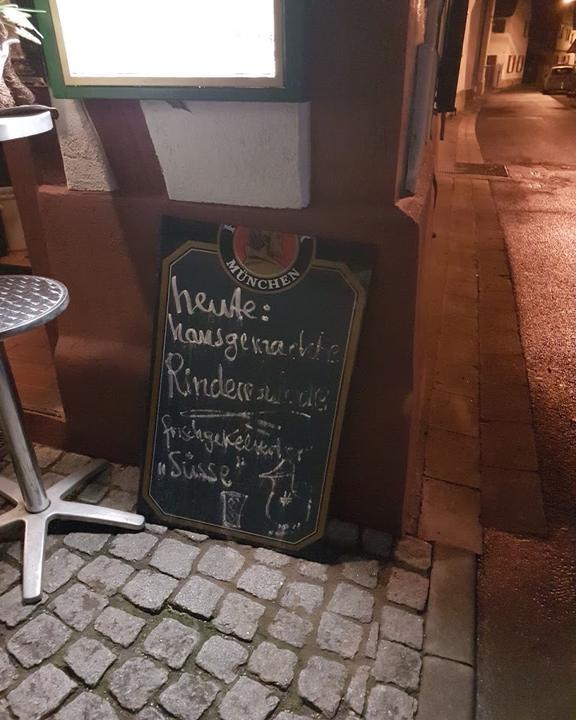 MÜNCHEN
heute:
hausgemachte
Rinderroulade
frischgekelterter
„Süsse"